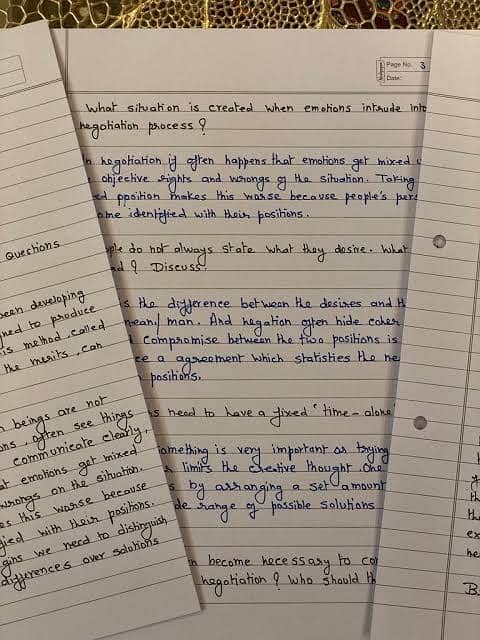 Page No. 3
Date:
What situation is created when emotions intrude into
negotiation process?
negotiation if often happens that emotions get mixed
objective rights and wrongs of the situation. Taking
ed pposition makes this worse because people's per
ome identified with their positions.
ple do not always state what they desire. What
? Discuss.
s the difference between the desires and th
mean/man. And negation often hide
compromise between the two positions is
ce a agreement which statisties the ne
positions.
s need to have a fixed "time-alone
omething is very important as trying
limits the creative thought. One
s by arranging a set amount
de range of possible solutions
become necessary to co
negotiation? Who should th
Questions
been developing
ned to produce
is method called
the merits, can
n beings are not
ons, often see things
communicate clearly,
at emotions get mixed
wrongs on the situation.
es this worse because
fied with their positions.
gins we need to distinguish
differences over solutions
th
the
ex
he
B